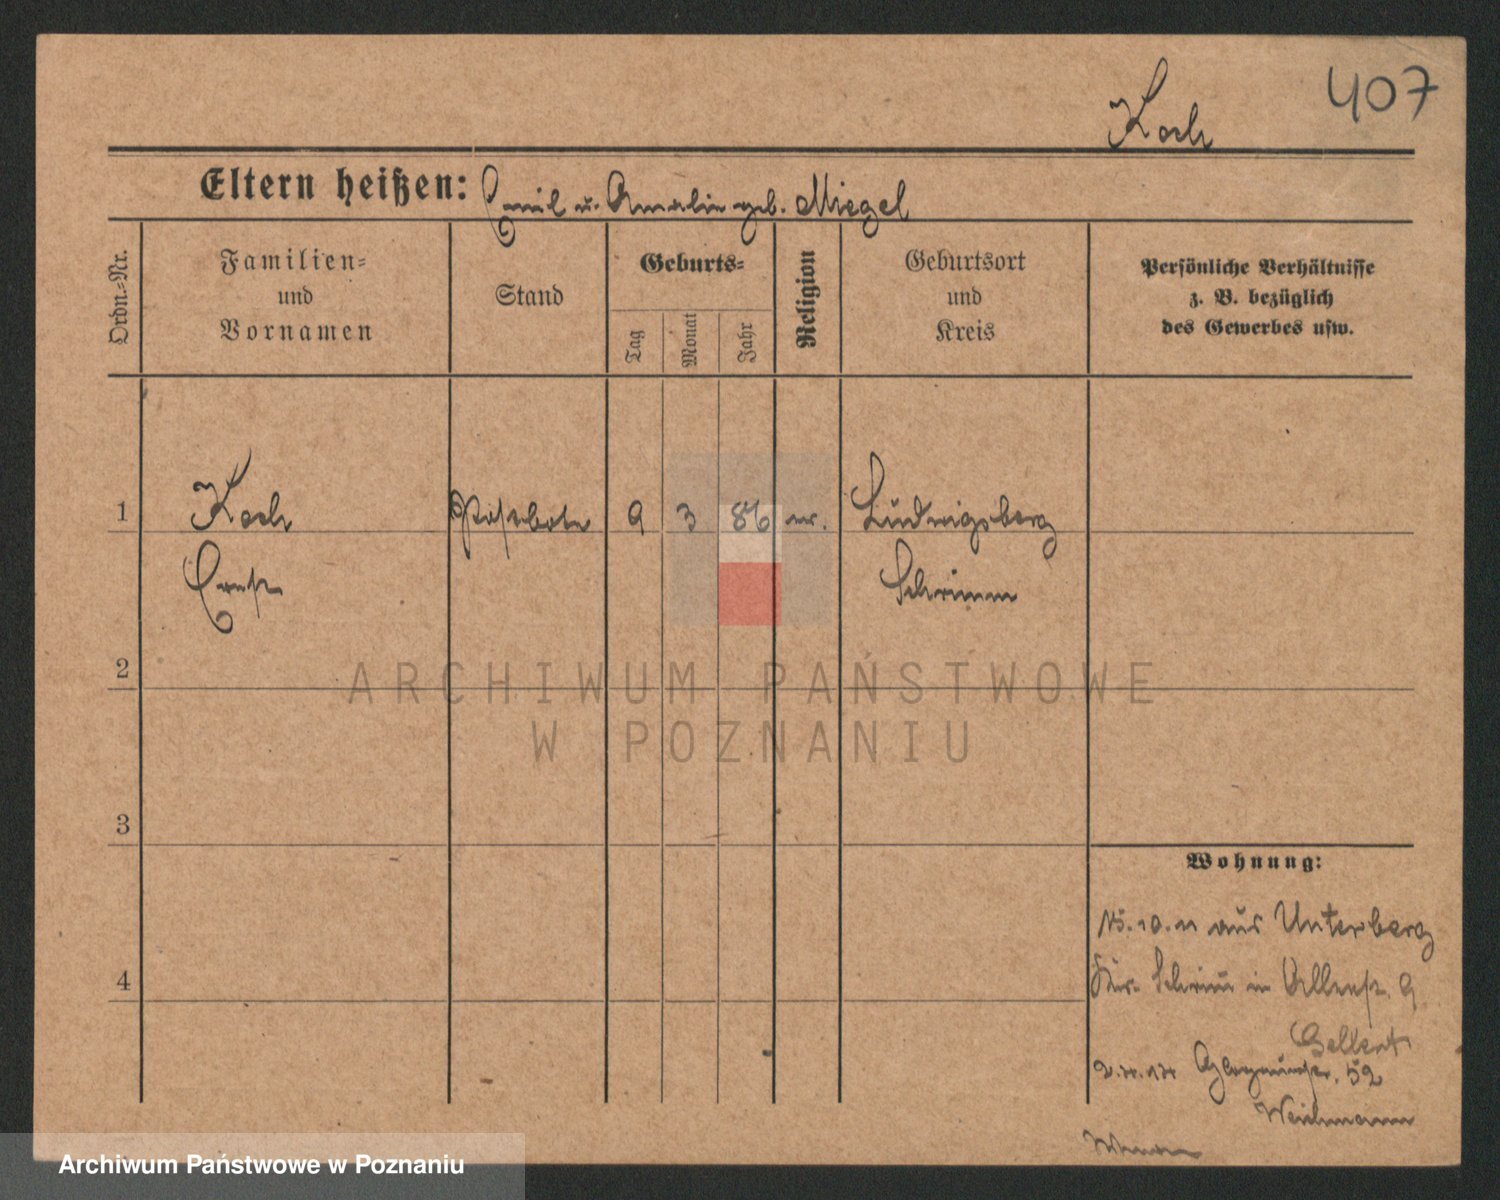 407
Koch
Eltern heißen: Emil u. Amalie geb. Miegel
Ordn.=Nr.
Familien=
und
Vornamen
Stand
Geburts=
Tag
Monat
Jahr
Religion
Geburtsort
und
Kreis
Persönliche Verhältnisse
z. B. bezüglich
des Gewerbes usw.
1 Koch Postbote 9 3 86 ev. Ludwigsberg
Ernst Schrimm
2
ARCHIWUM PAŃSTWOWE
W POZNANIU
3
Wohnung:
15.10.11 aus Unterberg
4
Krs. Schrim in 9
Gellert
52
Weichmann
Archiwum Państwowe w Poznaniu